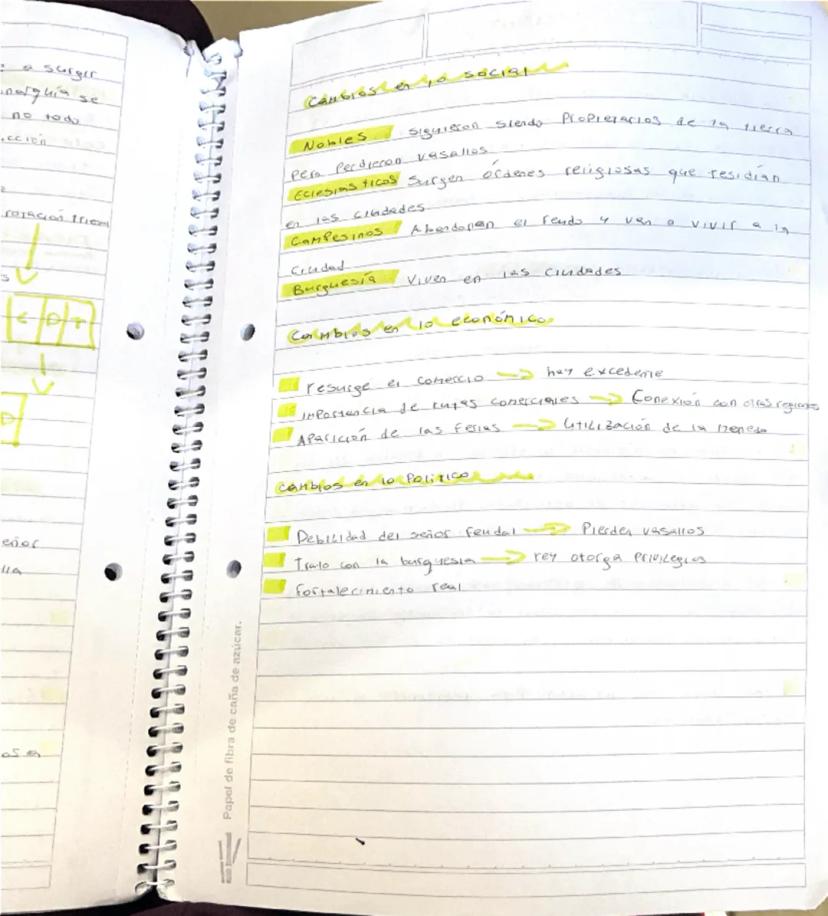 a surgir
narquía se
no todo
cción
rotación trien
s
C D T
D
eñor
lla
os a
Cambios en lo social
Nobles Siguieron siendo propietarios de la tierra
pero perdieron vasallos
Eclesiásticos Surgen órdenes religiosas que residían
en las ciudades
Campesinos Abandonan el feudo y van a vivir a la
ciudad
Burguesía Viven en las ciudades
Cambios en lo económico
resurge el comercio → hay excedente
importancia de rutas comerciales → Conexión con otras regiones
Aparición de las ferias → Utilización de la moneda
Cambios en lo Político
Debilidad del señor feudal → Pierden vasallos
Trato con la burguesía → rey otorga privilegios
fortalecimiento real
Papel de fibra de caña de azúcar.